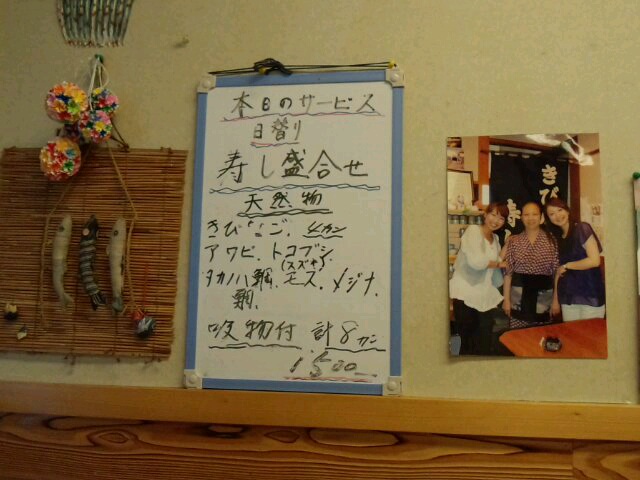 本日のサービス
日替り
寿し盛合せ
天然物
きびなご、4カン
アワビ、トコブシ
(スズキ)
タカノハ鯛、モス、メジナ、
鯛、
吸物付 計8カン
1500ー
きび
寿し